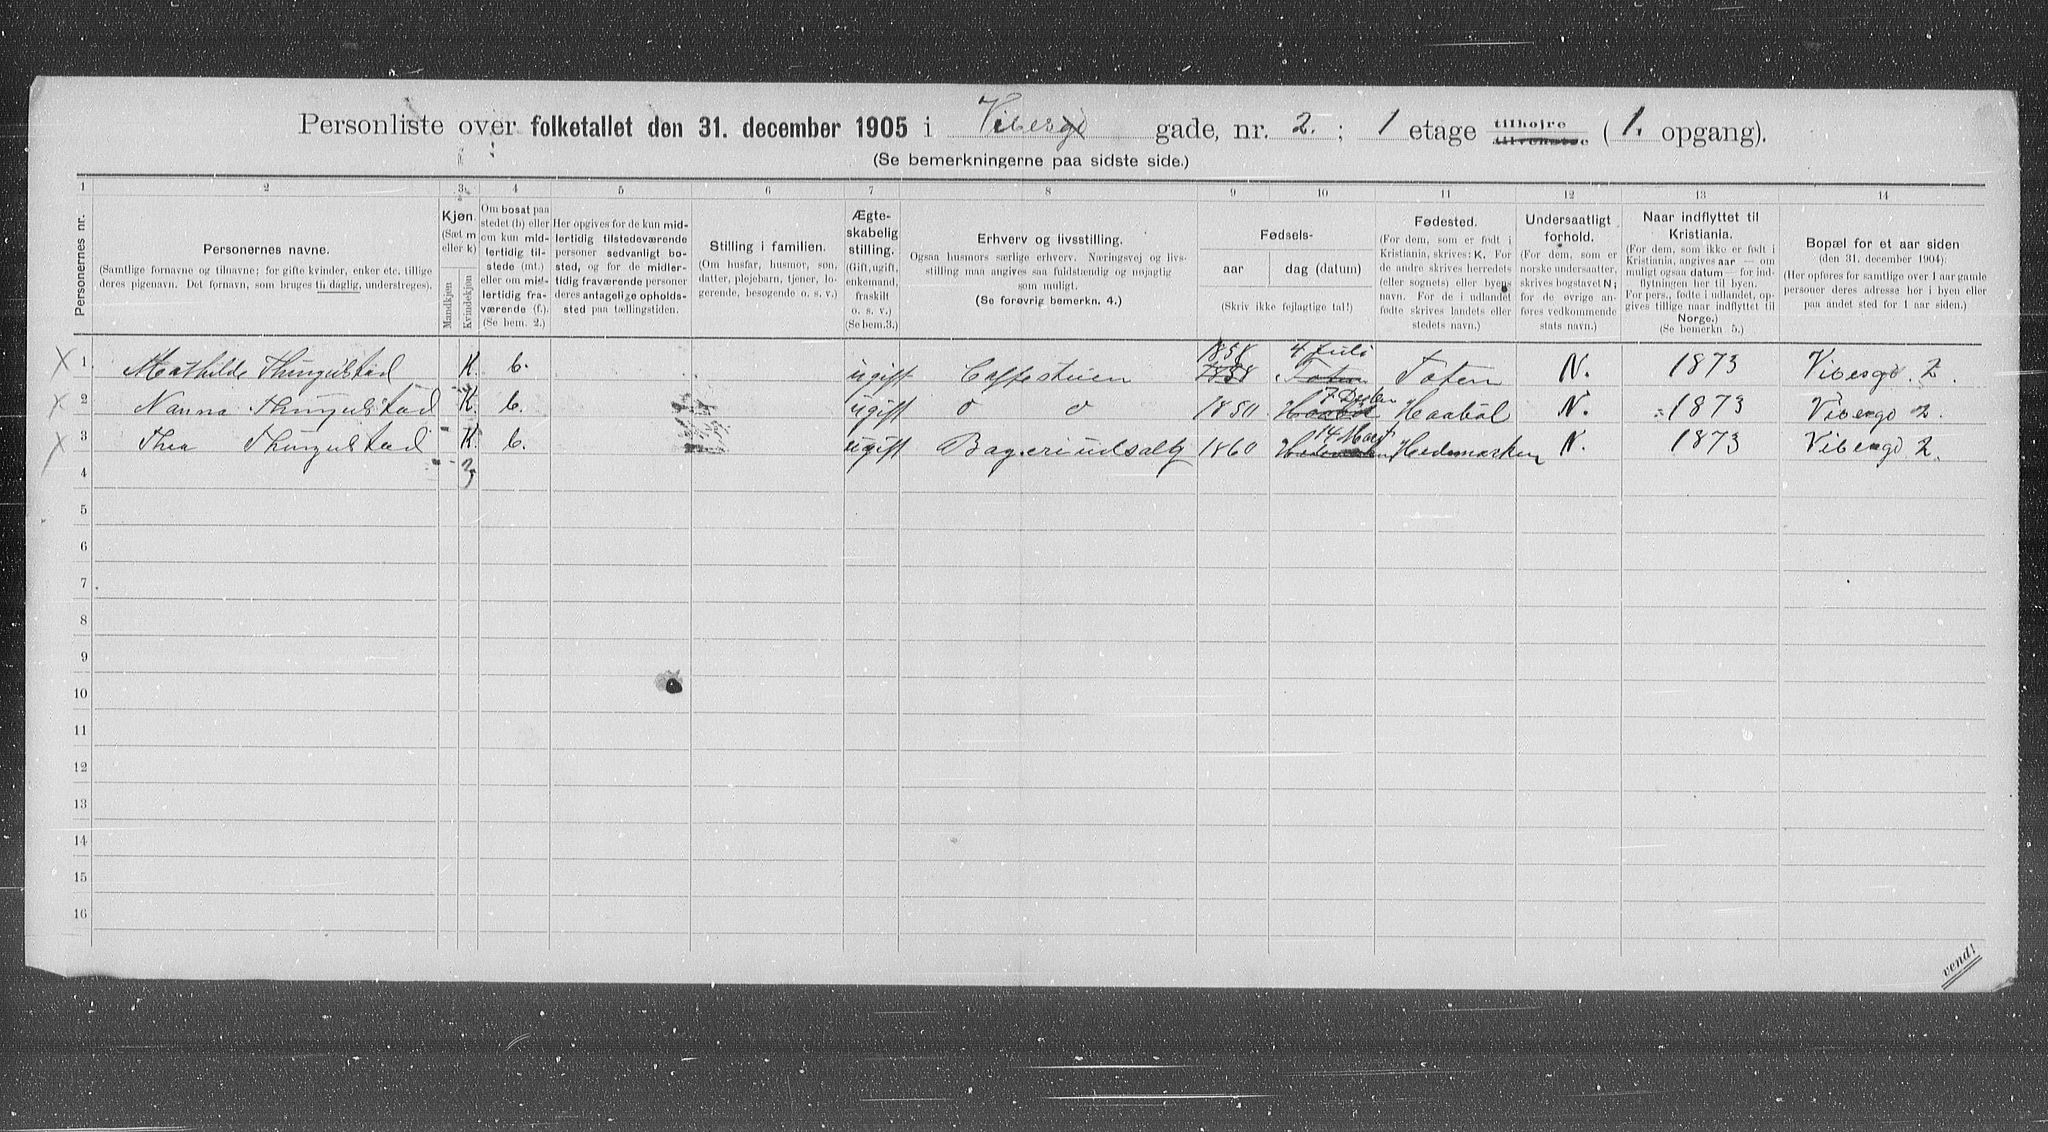 Personliste over folketallet den 31. december 1905 i Vibesgd gade, nr. 2. ; 1 etage tilhøjre tilvenstre ( 1. opgang).
(Se bemerkningerne paa sidste side.)
1 2 3 4 5 6 7 8 9 10 11 12 13 14
Personernes nr.
Personernes navne.
(Samtlige fornavne og tilnavne; for gifte kvinder, enker etc. tillige
deres pigenavn. Det fornavn, som bruges til daglig, understreges).
Kjøn.
(Sæt m
eller k)
Mandkjøn
Kvindekjøn
Om bosat paa
stedet (b) eller
om kun mid-
lertidig til-
stede (mt.)
eller om mid-
lertidig fra-
værende (f.).
(Se bem. 2.)
Her opgives for de kun mid-
lertidig tilstedeværende
personer sedvanligt bo-
sted, og for de midler-
tidig fraværende personer
deres antagelige opholds-
sted paa tællingstiden.
Stilling i familien.
(Om husfar, husmor, søn,
datter, plejebarn, tjener, lo-
gerende, besøgende o. s. v.)
Ægte-
skabelig
stilling.
(Gift, ugift,
enkemand,
fraskilt
o. s. v.)
(Se bem.3.)
Erhverv og livsstilling.
Ogsaa husmors særlige erhverv. Næringsvej og livs-
stilling maa angives saa fuldstændig og nøjagtig
som muligt.
(Se forøvrig bemerkn. 4.)
Fødsels-
aar dag (datum)
(Skriv ikke fejlagtige tal!)
Fødested.
(For dem, som er født i
Kristiania, skrives: K. For
de andre skrives herredets
(eller sognets) eller byens
navn. For de i udlandet
fødte skrives landets eller
stedets navn.)
Undersaatligt
forhold.
(For dem, som er
norske undersaatter,
skrives bogstavet N;
for de øvrige an-
føres vedkommende
stats navn.)
Naar indflyttet til
Kristiania.
(For dem, som ikke er født i
Kristiania, angives aar — om
muligt ogsaa datum — for ind-
flytningen her til byen.
For pers., fødte i udlandet, op-
gives tillige naar indflyttet til
Norge.)
(Se bemerkn 5.)
Bopæl for et aar siden
(den 31. december 1904):
(Her opføres for samtlige over 1 aar gamle
personer deres adresse her i byen eller
paa andet sted for 1 aar siden.)
1858 4 Juli
X 1 Mathilde Thingulstad K. b. ugift Caffestuen 1858 Toten Toten N. 1873 Vibesgd. 2.
7 Desbr
X 2 Nanna Thingulstad K. b. ugift 1850 Haabøl Haabøl N. 1873 Vibesgd 2.
14 Mars
X 3 Thea Thingulstad K. b. ugift Bageriudsalg 1860 Hedemarken Hedemarken N. 1873 Vibesgd 2.
4 3
5
6
7
8
9
10
11
12
13
14
15
16
vend!